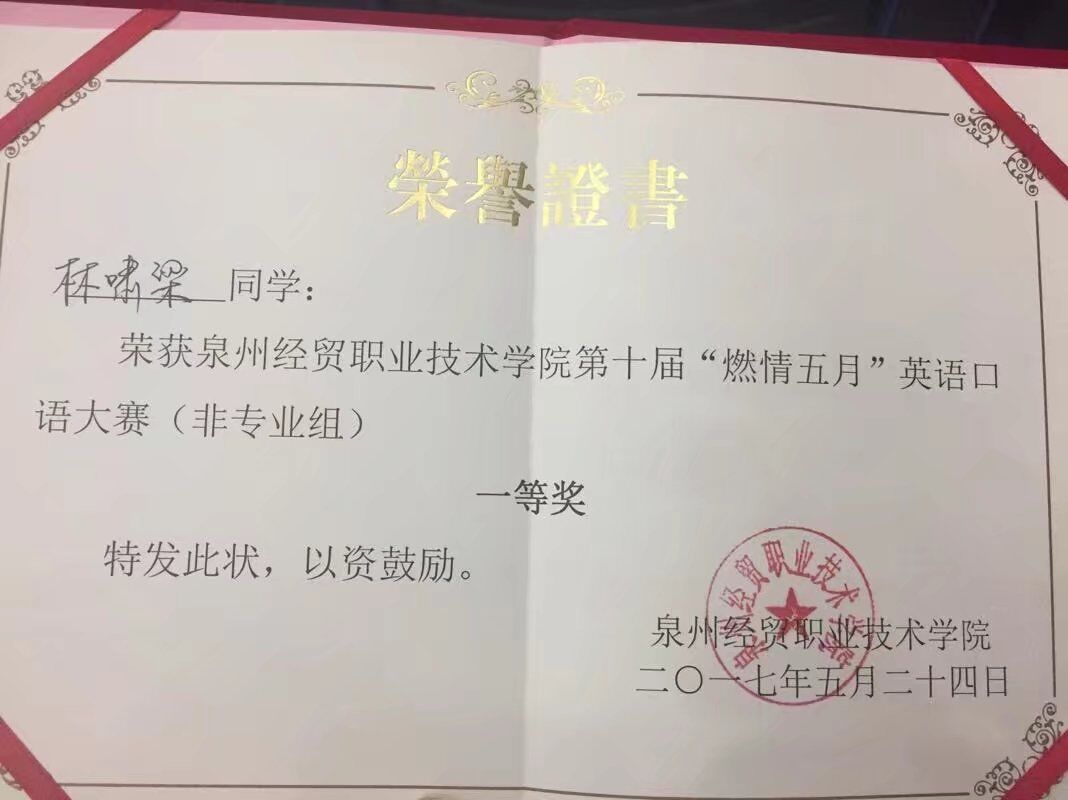 榮譽證書
林啸梁同学：
荣获泉州经贸职业技术学院第十届“燃情五月”英语口
语大赛（非专业组）
一等奖
特发此状，以资鼓励。
泉州经贸职业技术学院
泉州经贸职业技术学院
二〇一七年五月二十四日